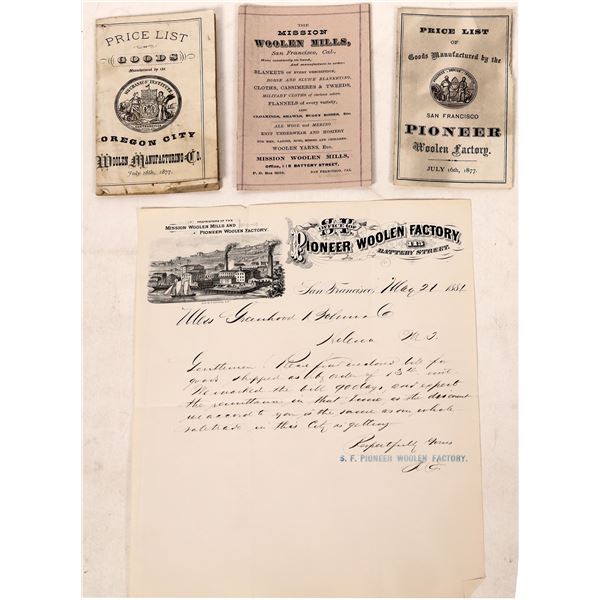 PRICE LIST
OF
GOODS
Manufactured by the
MECHANICS' INSTITUTE
OREGON CITY
WOOLEN MANUFACTURING CO.
July 16th, 1877.
THE
MISSION
WOOLEN MILLS,
San Francisco, Cal.,
Have constantly on hand,
And manufacture to order:
BLANKETS OF EVERY DESCRIPTION,
HORSE AND SLUICE BLANKETING,
CLOTHS, CASSIMERES & TWEEDS,
MILITARY CLOTHS of various colors,
FLANNELS of every variety,
ALSO
CLOAKINGS, SHAWLS, BUGGY ROBES, Etc.
ALL WOOL and MERINO
KNIT UNDERWEAR AND HOSIERY
FOR MEN, LADIES, BOYS, MISSES AND CHILDREN.
WOOLEN YARNS, Etc.
MISSION WOOLEN MILLS,
Office, 115 BATTERY STREET,
P. O. Box SAN FRANCISCO, CAL.
PRICE LIST
OF
Goods Manufactured by the
SAN FRANCISCO
PIONEER
Woolen Factory.
JULY 16th, 1877.
PROPRIETORS OF THE
MISSION WOOLEN MILLS AND
PIONEER WOOLEN FACTORY.
OFFICE OF
PIONEER WOOLEN FACTORY,
115
BATTERY STREET.
San Francisco, May 21 1881
Mess Greenhood & Bohm Co
Helena M. T.
Gentlemen Please find enclosed bill for
goods shipped as by order of 13th inst
We marked the bill 90 days, and expect
the remittance in that time as the discount
we accord to you is the same as our whole
sale trade in this City is getting
Respectfully Yours
S. F. PIONEER WOOLEN FACTORY.